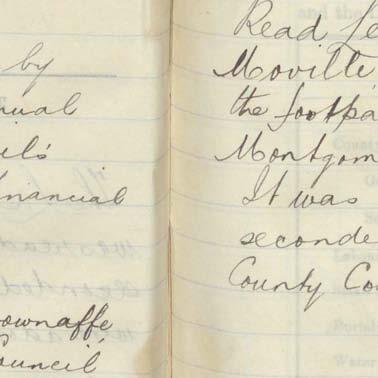 by
nual
il's
inancial
ownaffe
Council
Read Le
Moville
the footpa
Montgom
It was
seconde
County Co